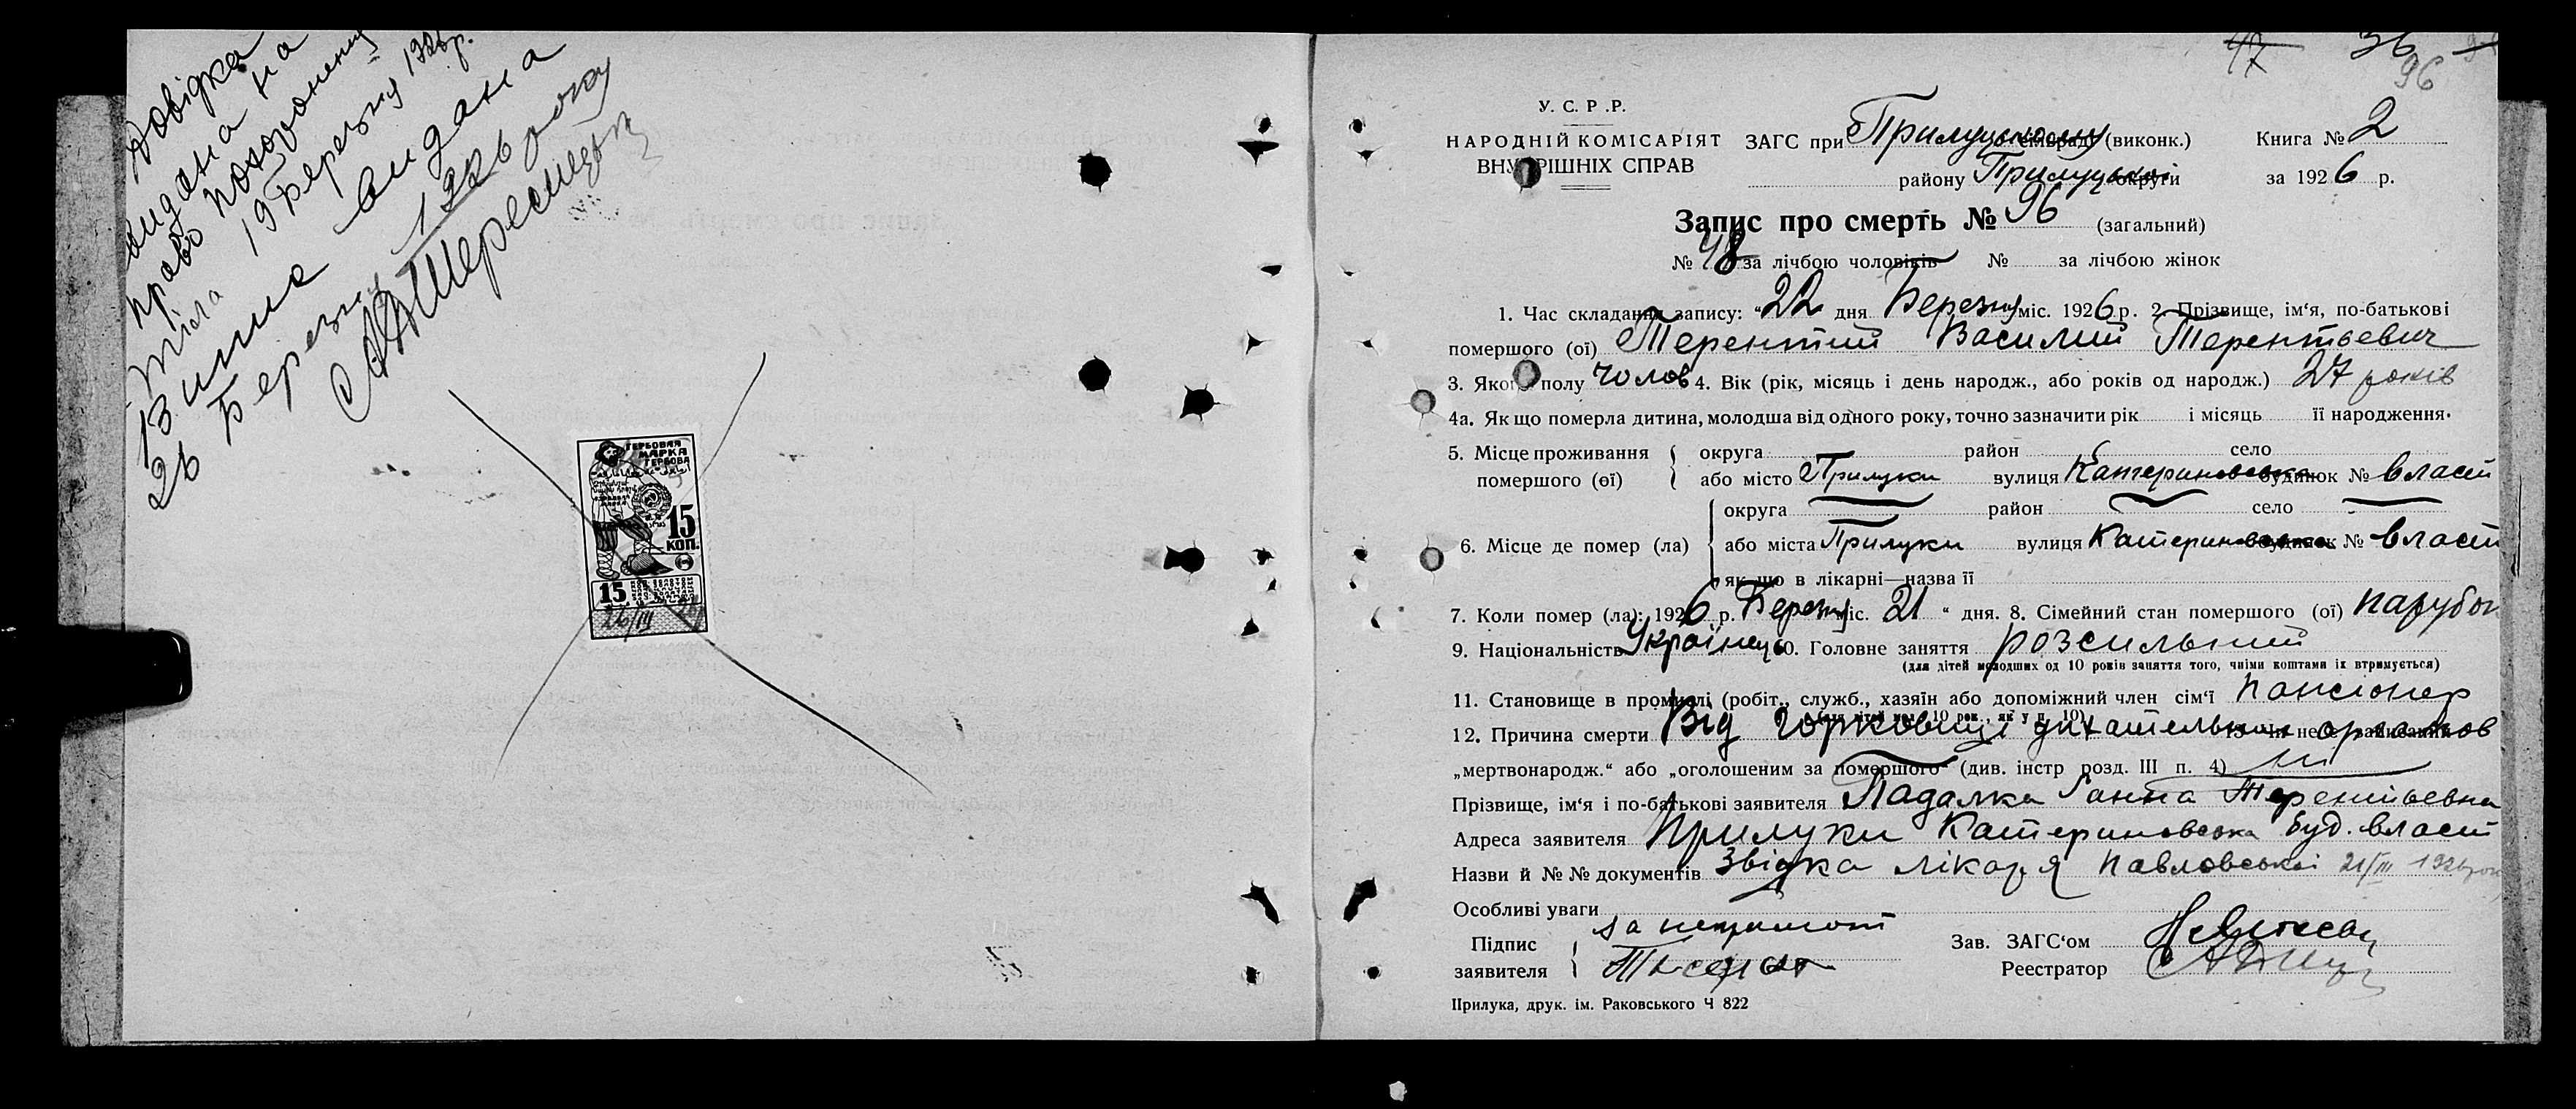 Довідка
видана на
право похоронення
тіла 19 Березня 1926 р.
Виписка видана
26 Березня 1926 року
ГЕРБОВАЯ
МАРКА
ГЕРБОВА
15
КОП.
15
26/III 26
47 36
96
У. С. Р. Р.
НАРОДНІЙ КОМІСАРІЯТ
ВНУТРІШНІХ СПРАВ
ЗАГС при Прилуцькому сельраді (виконк.) Книга № 2
району Прилуцької округи за 1926 р.
Запис про смерть № 96 (загальний)
№ 48 за лічбою чоловіків № за лічбою жінок
1. Час складання запису: “22 дня Березня міс. 1926 р. 2. Прізвище, ім‘я, по-батькові
помершого (ої) Терентий Василий Терентьевич
3. Якого полу чолов 4. Вік (рік, місяць і день народж., або років од народж.) 27 років
4а. Як що померла дитина, молодша від одного року, точно зазначити рік і місяць її народження.
5. Місце проживання округа район село
помершого (ої) або місто Прилуки вулиця Катериновська будинок № власн
округа район село
6. Місце де помер (ла) або міста Прилуки вулиця Катериновська будинок № власн
як що в лікарні—назва її
7. Коли помер (ла): 1926 р. Березня міс. 21 “ дня. 8. Сімейний стан помершого (ої) парубок
9. Національність Українец 10. Головне заняття розсильний
(для дітей молодших од 10 років заняття того, чиїми коштами їх втримується)
11. Становище в промислі (робіт., служб., хазяїн або допоміжний член сім‘ї пансіонер
(для дітей мол. 10 рок., як у п. 10)
12. Причина смерти Від горковиці дихательних органов
„мертвонародж.“ або „оголошеним за помершого“ (див. інстр розд. III п. 4) ні
Прізвище, ім‘я і по-батькові заявителя Падалка Ганна Терентьевна
Адреса заявителя Прилуки Катериновська буд. власн
Назви й №№ документів Звідка лікаря Павловської 21/III 1926 рок
Особливі уваги
Підпис за неграмот
заявителя
Зав. ЗАГС‘ом
Реестратор
Прилука, друк. ім. Раковського Ч 822